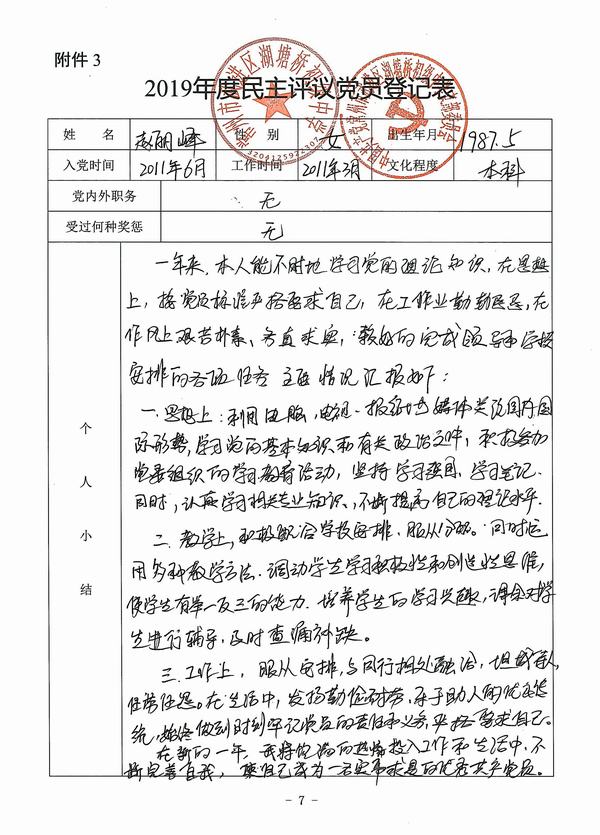 附件 3
2019年度民主评议党员登记表
姓 名 赵丽峰 性 别 女 出生年月 1987.5
入党时间 2011年6月 工作时间 2011年3月 文化程度 本科
党内外职务 无
受过何种奖惩 无
个人小结
一年来,本人能不时地学习党的理论知识,在思想
上,按党员标准严格要求自己,在工作上勤勤恳恳,在
作风上艰苦朴素、务真求实,较好的完成领导和学校
安排的各项任务 主要情况汇报如下:
一.思想上:利用电脑,电视、报纸等媒体关注国内国
际形势,学习党的基本知识和有关政治文件,积极参加
党委组织的学习教育活动,坚持学习,学习笔记.
同时,认真学习相关专业知识、不断提高自己的理论水平.
二.教学上,积极配合学校安排、服从分配。同时运
用多种教学方法.调动学生学习积极性和创造性思维,
使学生有举一反三的能力.培养学生的学习兴趣,课余对学
生进行辅导,及时查漏补缺。
三.工作上,服从安排,与同行相处融洽,
任劳任怨。在生活中,发扬勤俭耐劳,乐于助人的优良传
统,始终做到时刻牢记党员的责任和义务,严格要求自己。
在新的一年,我将饱满的热情投入工作和生活中,不
断完善自我,使自己成为一名实事求是的优秀共产党员。
- 7 -